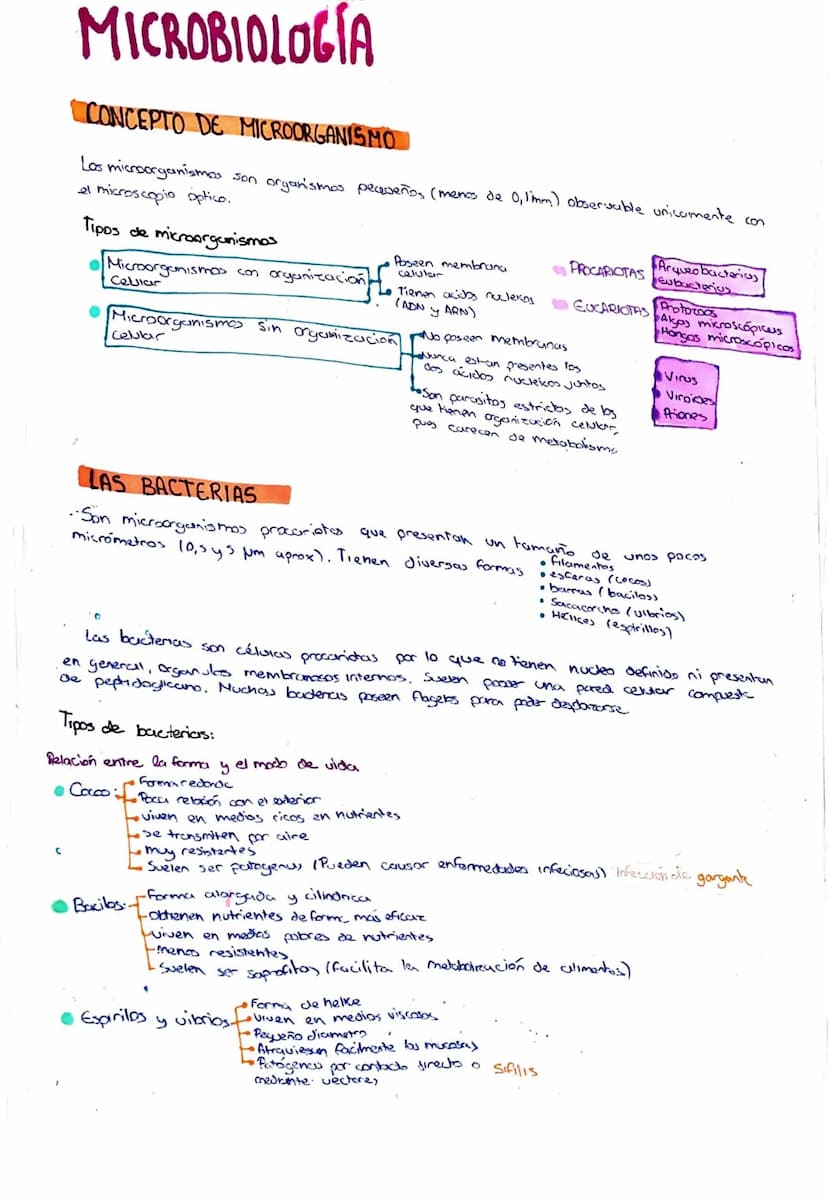 MICROBIOLOGÍA
CONCEPTO DE MICROORGANISMO
Los microorganismos son organismos pequeños (menos de 0,1mm) observable unicamente con
el microscopio óptico.
Tipos de microorganismos
Microorganismos con organización
celular
Poseen membrana
celular
Tienen acidos nucleicos
(ADN y ARN)
PROCARIOTAS
Arqueobacterias
Eubacterias
EUCARIOTAS
Protozoos
Algas microscópicas
Hongos microscópicos
Microorganismos sin organización
celular
No poseen membranas
Nunca estan presentes los
dos ácidos nucleicos juntos
Son parasitos estrictos de los
que tienen organización celular,
pues carecen de metabolismo
Virus
Viroides
Priones
LAS BACTERIAS
Son microorganismos procariotas que presentan un tamaño de unos pocos
micrómetros (0,5 y 5 µm aprox). Tienen diversas formas
• Filamentos
• esferas (cocos)
• barras (bacilos)
• Sacacorcho (vibrios)
• Hélices (espirillos)
Las bacterias son células procariotas por lo que no tienen nucleo definido ni presentan
en general, organulos membranosos internos. Suelen poseer una pared celular compuesta
de peptidoglicano. Muchas bacterias poseen flagelos para poder desplazarse.
Tipos de bacterias:
Relación entre la forma y el modo de vida
Coco:
Forma redonda
Poca relación con el exterior
viven en medios ricos en nutrientes
se transmiten por aire
muy resistentes
Suelen ser patogenos (Pueden causar enfermedades infeciosas) Infección de garganta
Bacilos:
Forma alargada y cilíndrica
Obtienen nutrientes de forma más eficaz
viven en medios pobres de nutrientes
menos resistentes
Suelen ser saprofitos (facilita la metabolización de alimentos)
Espirilos y vibrios
Forma de helice
Viven en medios viscosos
Pequeño diametro
Atraviesan facilmente las mucosas
Patógenos por contacto directo o
mediante vectores
Sifilis